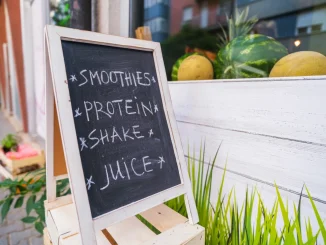 * SMOOTHIES *
* PROTEIN *
* SHAKE *
* JUICE *